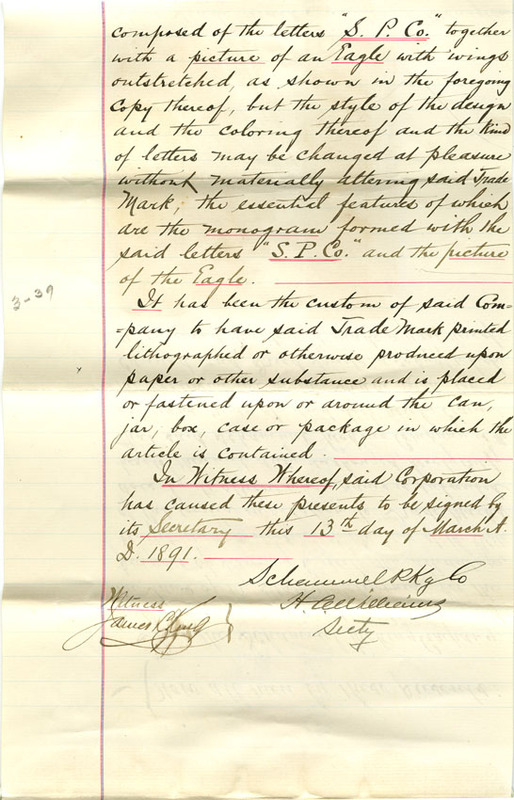 composed of the letters "S. P. Co." together
with a picture of an Eagle with wings
outstretched, as shown in the foregoing
Copy thereof, but the style of the design
and the coloring thereof and the kind
of letters may be changed at pleasure
without materially altering said Trade
Mark; the essential features of which
are the monogram formed with the
said letters "S. P. Co." and the picture
of the Eagle.
3-39
It has been the custom of said Com-
-pany to have said Trade Mark printed
lithographed or otherwise produced upon
paper or other substance and is placed
or fastened upon or around the can,
jar, box, case or package in which the
article is contained.
In Witness Whereof, said Corporation
has caused these presents to be signed by
its Secretary this 13th day of March A.
D. 1891.
Schammel Pkg Co
H.
Secty
Witness
James